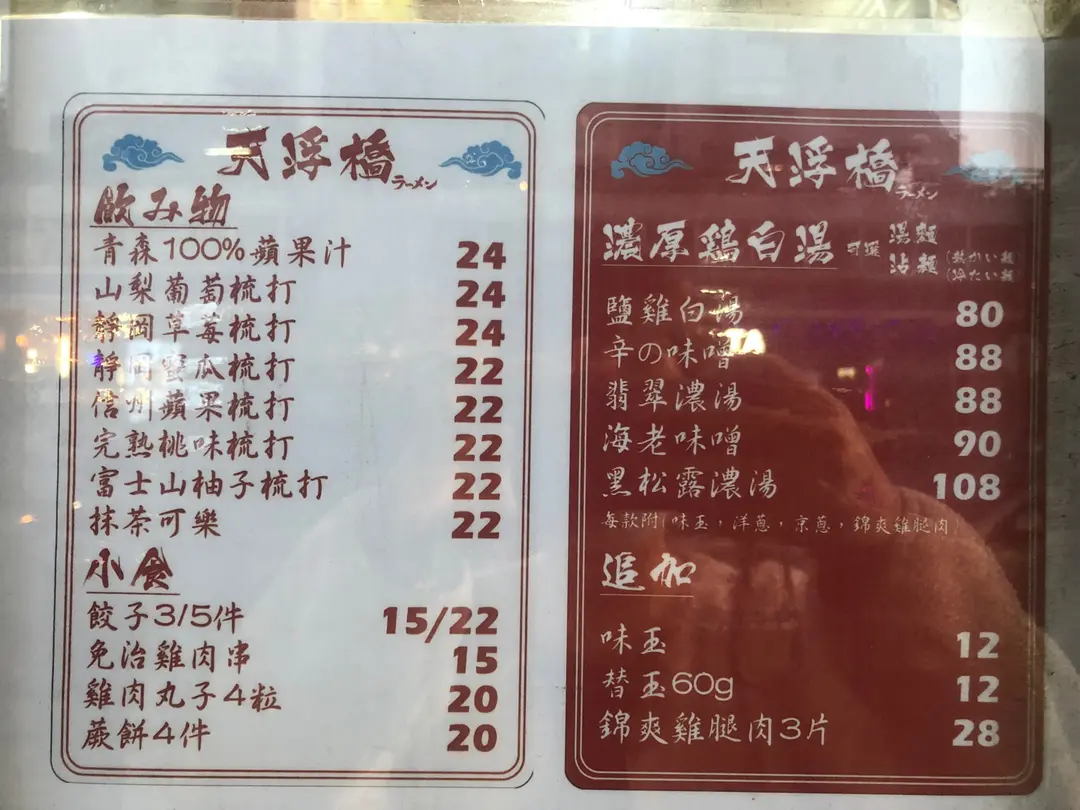 天浮橋
ラーメン
飲み物
青森100%蘋果汁 24
山梨葡萄梳打 24
靜岡草莓梳打 24
靜岡蜜瓜梳打 22
信州蘋果梳打 22
完熟桃味梳打 22
富士山柚子梳打 22
抹茶可樂 22
小食
餃子3/5件 15/22
免治雞肉串 15
雞肉丸子4粒 20
蕨餅4件 20
天浮橋
ラーメン
濃厚鶏白湯 可選 湯麵
沾麵 (熱かい麵)
(冷たい麵)
鹽雞白湯 80
辛の味噌 88
翡翠濃湯 88
海老味噌 90
黑松露濃湯 108
每款附(味玉,洋蔥,京蔥,錦爽雞腿肉)
追加
味玉 12
替玉60g 12
錦爽雞腿肉3片 28